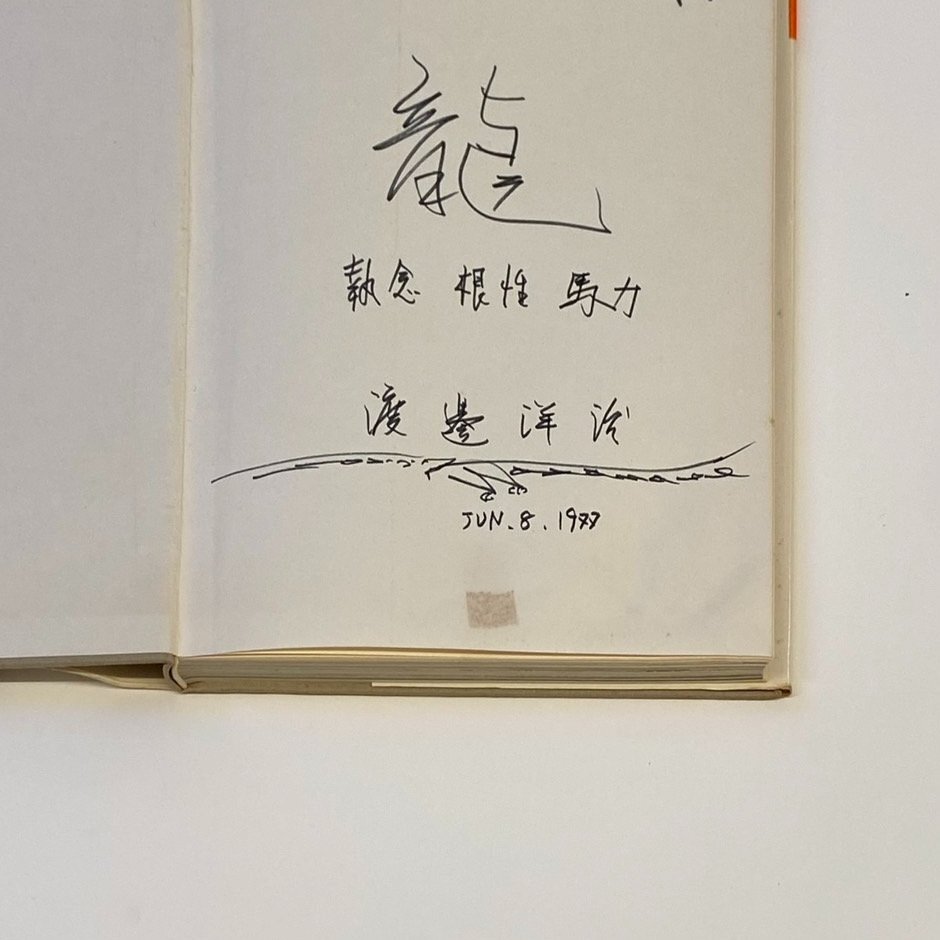 龍
執念 根性 馬力
渡邊洋治
JUN. 8. 1977